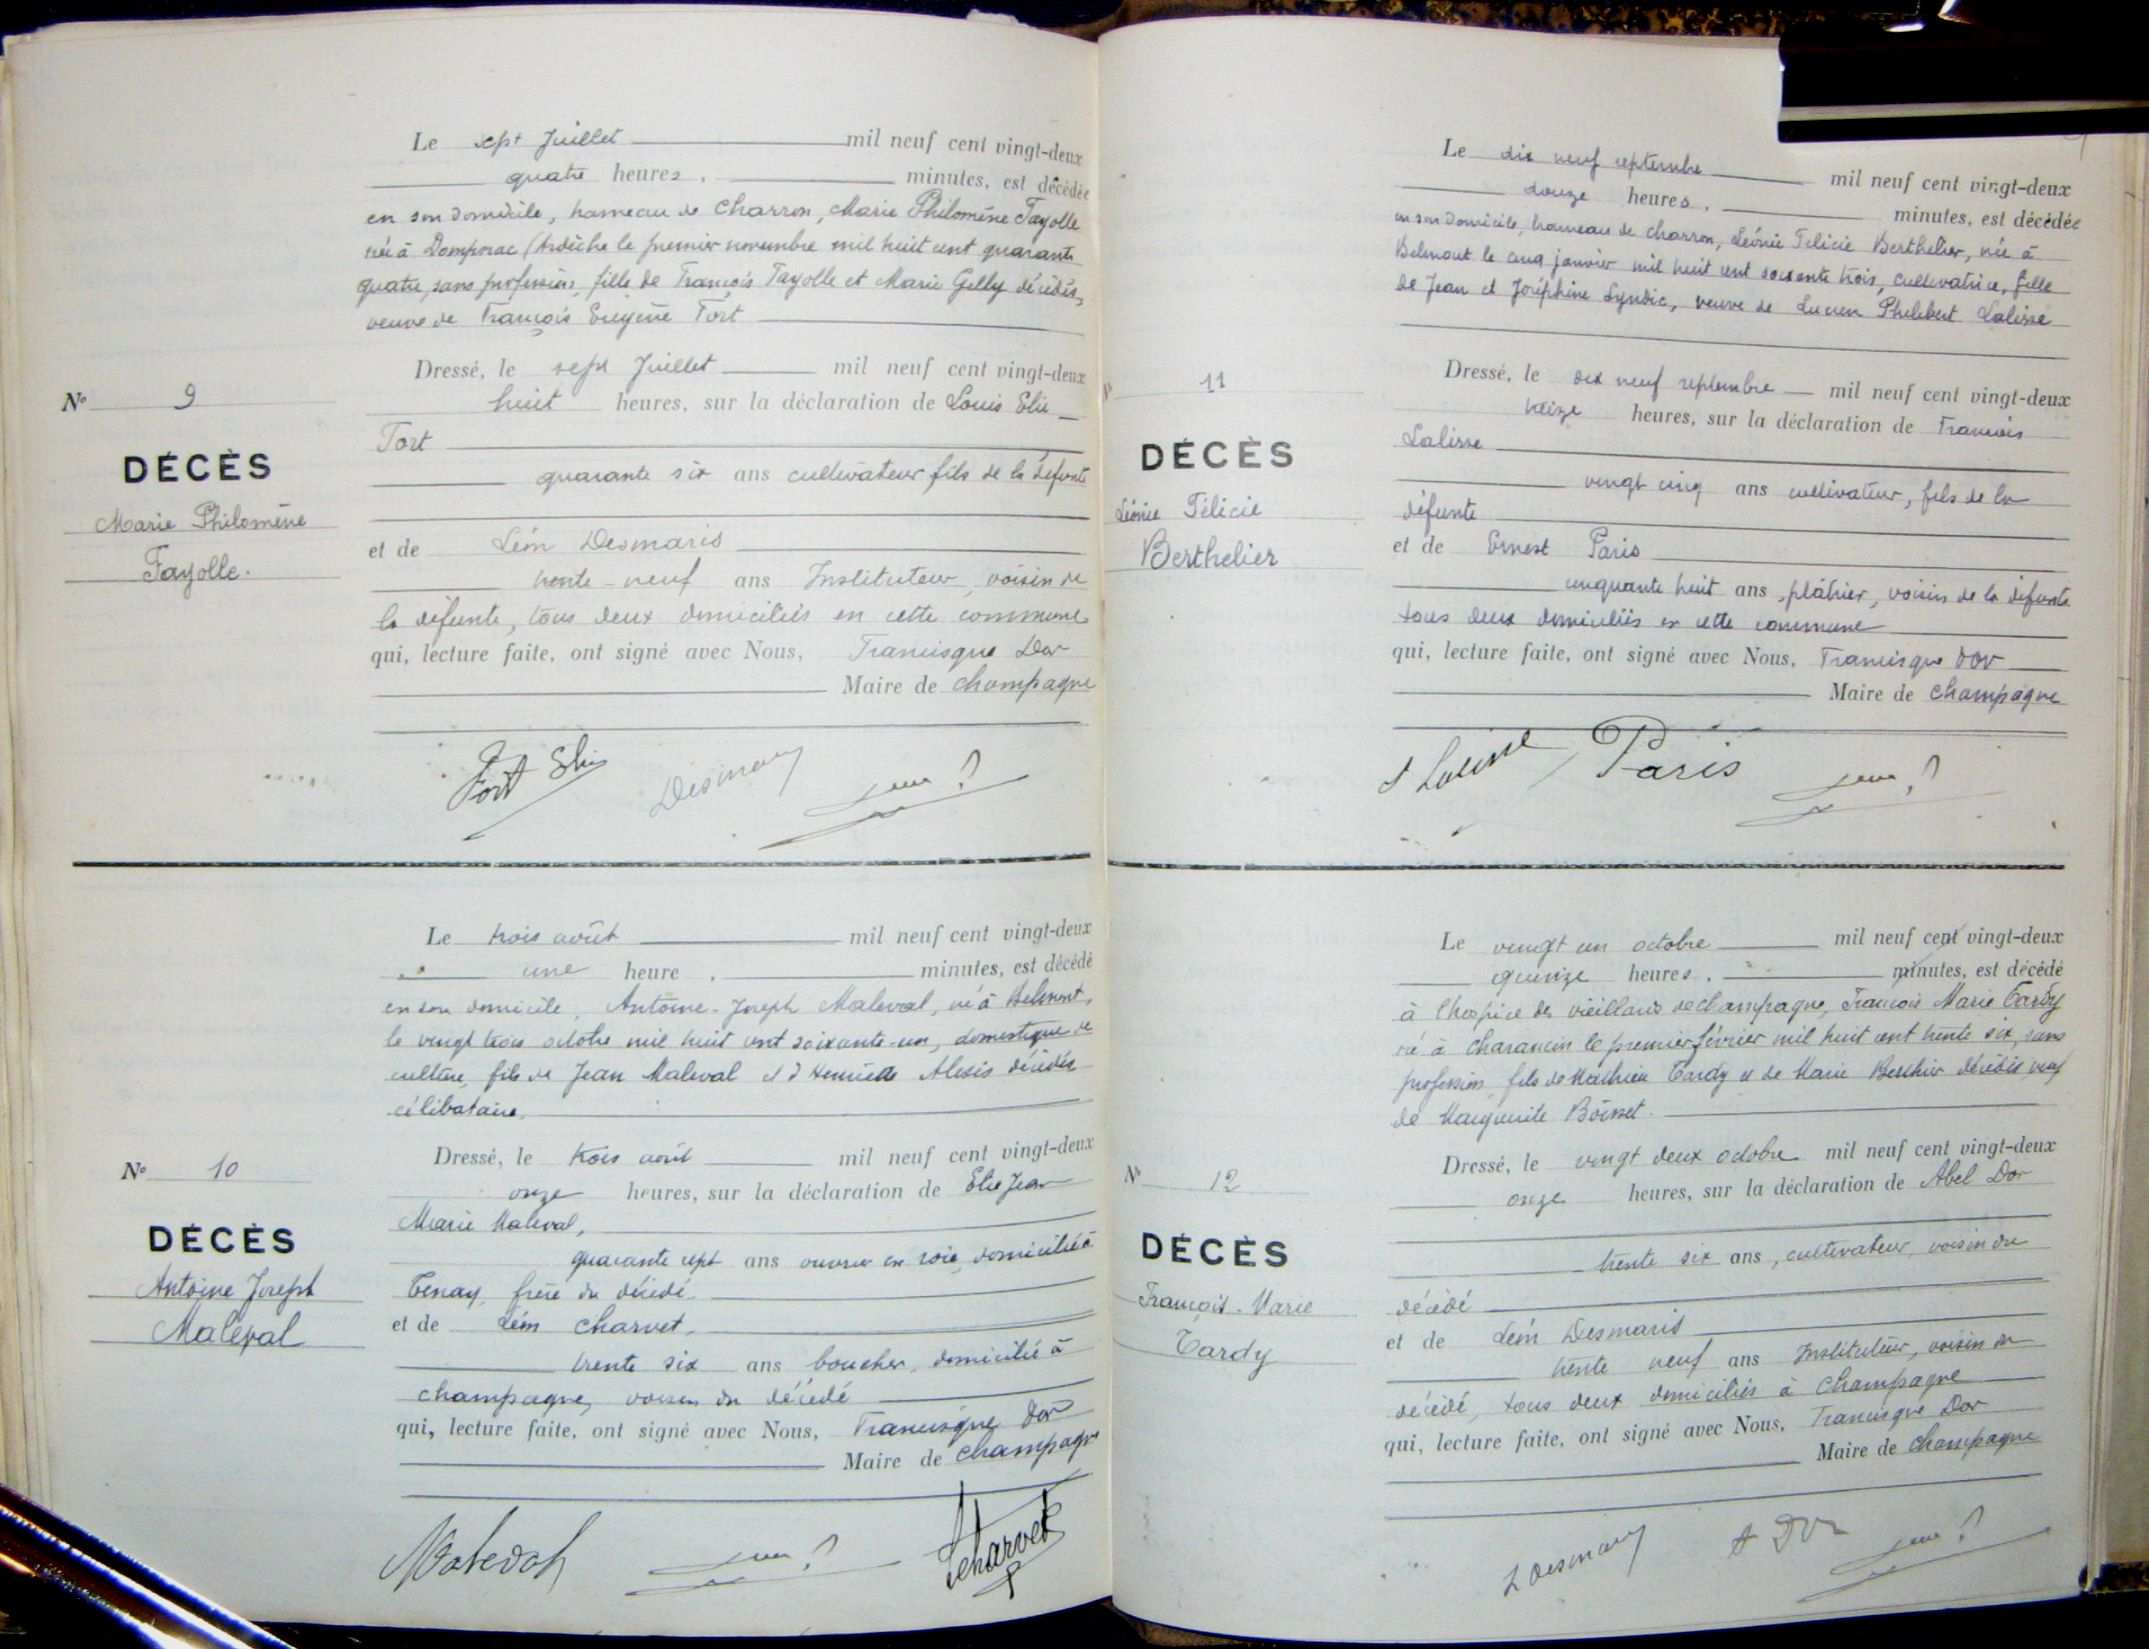 Le sept Juillet mil neuf cent vingt-deux
quatre heures, minutes, est décédée
en son domicile, hameau de Charron, Marie Philomène Fayolle
née à Dompnac (Ardèche le premier novembre mil huit cent quarante
quatre, sans profession, fille de François Fayolle et Marie Gelly décédés,
veuve de François Eugène Fort
Dressé, le sept Juillet mil neuf cent vingt-deux
huit heures, sur la déclaration de Louis Elie
Fort
quarante six ans cultivateur fils de la défunte
et de Léon Desmaris
trente-neuf ans Instituteur, voisin de
la défunte, tous deux domiciliés en cette commune
qui, lecture faite, ont signé avec Nous, Francisque Dor
Maire de Champagne
Fort Elie Desmaris
No 9
DÉCÈS
Marie Philomène
Fayolle.
Le trois août mil neuf cent vingt-deux
une heure, minutes, est décédé
en son domicile, Antoine-Joseph Maleval, né à Belmont,
le vingt trois octobre mil huit cent soixante-un, domestique de
culture, fils de Jean Maleval et d' Alexis décédés
célibataire.
Dressé, le trois août mil neuf cent vingt-deux
onze heures, sur la déclaration de Elie Jean
Marie Maleval,
quarante sept ans ouvrier en soie, domicilié à
Tenay, frère du décédé.
et de Léon Charvet,
trente six ans boucher, domicilié à
Champagne, voisin du décédé
qui, lecture faite, ont signé avec Nous, Francisque Dor
Maire de Champagne
Maleval Charvet
No 10
DÉCÈS
Antoine Joseph
Maleval
Le dix neuf septembre mil neuf cent vingt-deux
douze heures, minutes, est décédée
en son domicile, hameau de Charron, Léonie Félicie Berthelier, née à
Belmont le cinq janvier mil huit cent soixante trois, cultivatrice, fille
de Jean et Joséphine Syndic, veuve de Lucien Philibert Lalisse
Dressé, le dix neuf septembre mil neuf cent vingt-deux
treize heures, sur la déclaration de François
Lalisse
vingt cinq ans cultivateur, fils de la
défunte
et de Ernest Paris
cinquante huit ans, plâtrier, voisin de la défunte
tous deux domiciliés en cette commune
qui, lecture faite, ont signé avec Nous, Francisque Dor
Maire de Champagne
Lalisse Paris
11
DÉCÈS
Léonie Félicie
Berthelier
Le vingt un octobre mil neuf cent vingt-deux
quinze heures, minutes, est décédé
à l'hospice des vieillards de Champagne, François Marie Tardy
né à Charancin le premier février mil huit cent trente six, sans
profession, fils de Mathieu Tardy et de Marie Berthier décédés, veuf
de Marguerite Boisset.
Dressé, le vingt deux octobre mil neuf cent vingt-deux
onze heures, sur la déclaration de Abel Dor
trente six ans, cultivateur, voisin du
décédé
et de Léon Desmaris
trente neuf ans Instituteur, voisin du
décédé, tous deux domiciliés à Champagne
qui, lecture faite, ont signé avec Nous, Francisque Dor
Maire de Champagne
L Desmaris A Dor
No 12
DÉCÈS
François-Marie
Tardy